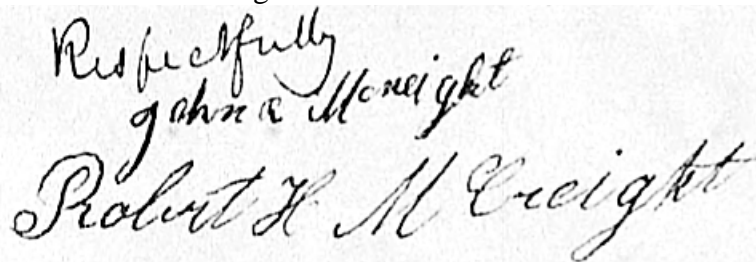 Respectfully
John a Mcneight
Robert H McCreight